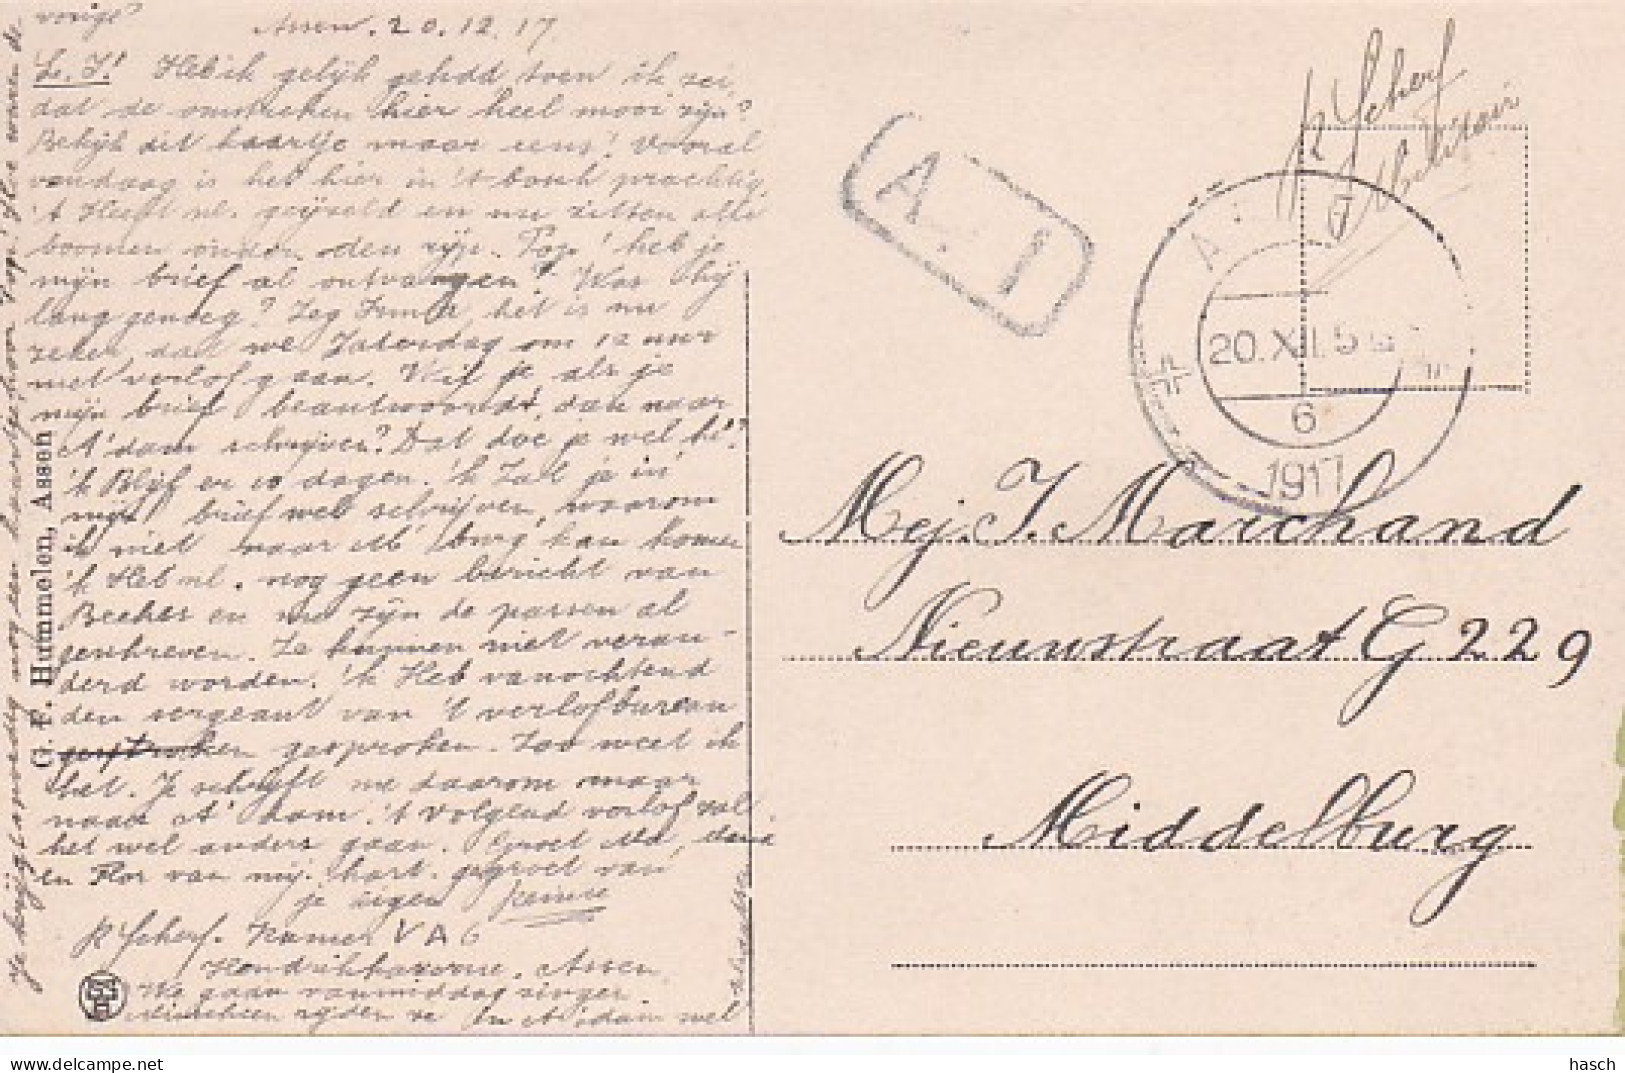 Assen. 20.12.17.
L. J! Heb ik gelijk gehad, toen ik zei,
dat de omstreken hier heel mooi zijn?
Bekijk dit kaartje maar eens! Vooral
vandaag is het hier in 't bosch prachtig
't Heeft nl. geijzeld en nu zitten alle
boomen onder den rijp. Top! heb je
mijn brief al ontvangen? Was hij
lang genoeg? Zeg het is nu
zeker, dat we Zaterdag om 12 uur
met verlof gaan. Wil je, als je
mijn brief beantwoordt, dan naar
A'dam schrijven? Dat doe je wel hè?
'k Blijf er 10 dagen. 'k Zal je in
mijn brief wel schrijven, waarom
ik niet naar M'burg kan komen
'k Heb nl. nog geen bericht van
Beekes en nu zijn de passen al
geschreven. Ze kunnen niet veran-
derd worden. 'k Heb vanochtend
den sergeant van 't verlofbureau
gesproken. Zoo weet ik
het. Je schrijft me daarom maar
naar A'dam. 't Volgend verlof zal
het wel anders gaan. Groet Ma,
en Flor van mij. hart. gegroet van
je eigen
P Scherf. Kamer VA6
Hendrikkazerne, Assen.
We gaan vanmiddag
Misschien rijden we in A'dam wel
schaatsen
Je krijgt nog een kaartje hoor
vorige
G. F. Hummelen, Assen
A. 1
P Scherf
Militair
A
20.XII.5
6
1917
Mej. J. Marchand
Nieuwstraat G 229
Middelburg
hasch